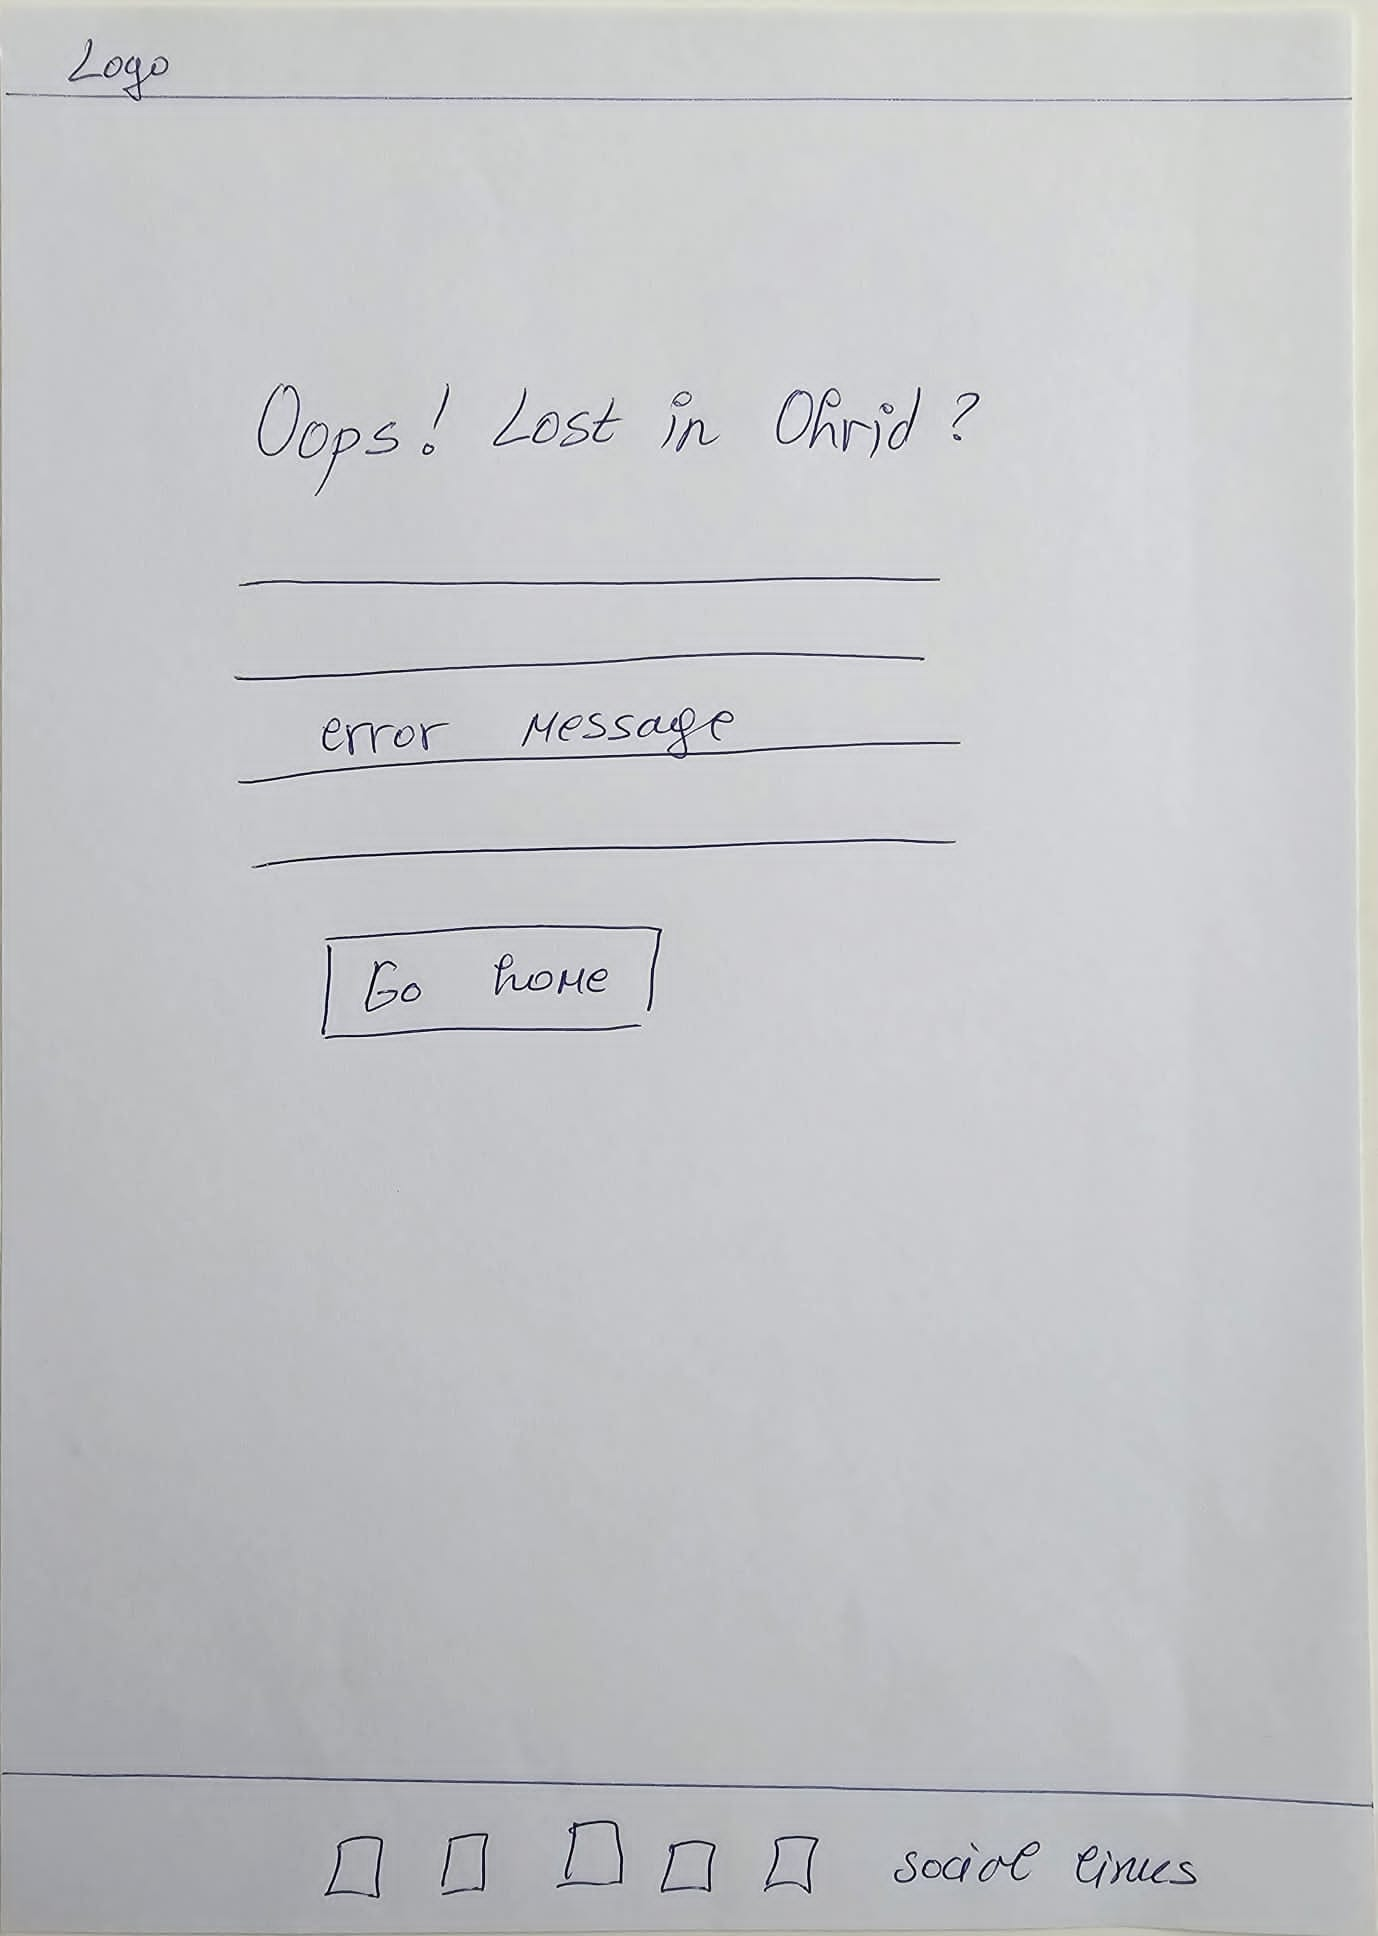 Logo
Oops! Lost in Ohrid?
error message
Go home
social links